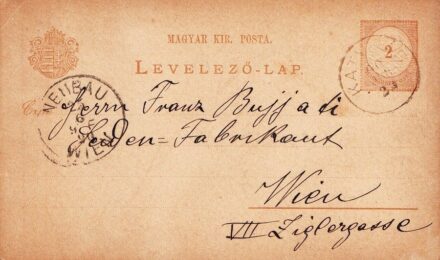 MAGYAR KIR. POSTA.
LEVELEZŐ-LAP.
2
NEUBAU
WIEN
Herrn Franz Bujjati
Seiden=Fabrikant
Wien
VII Zieglergasse